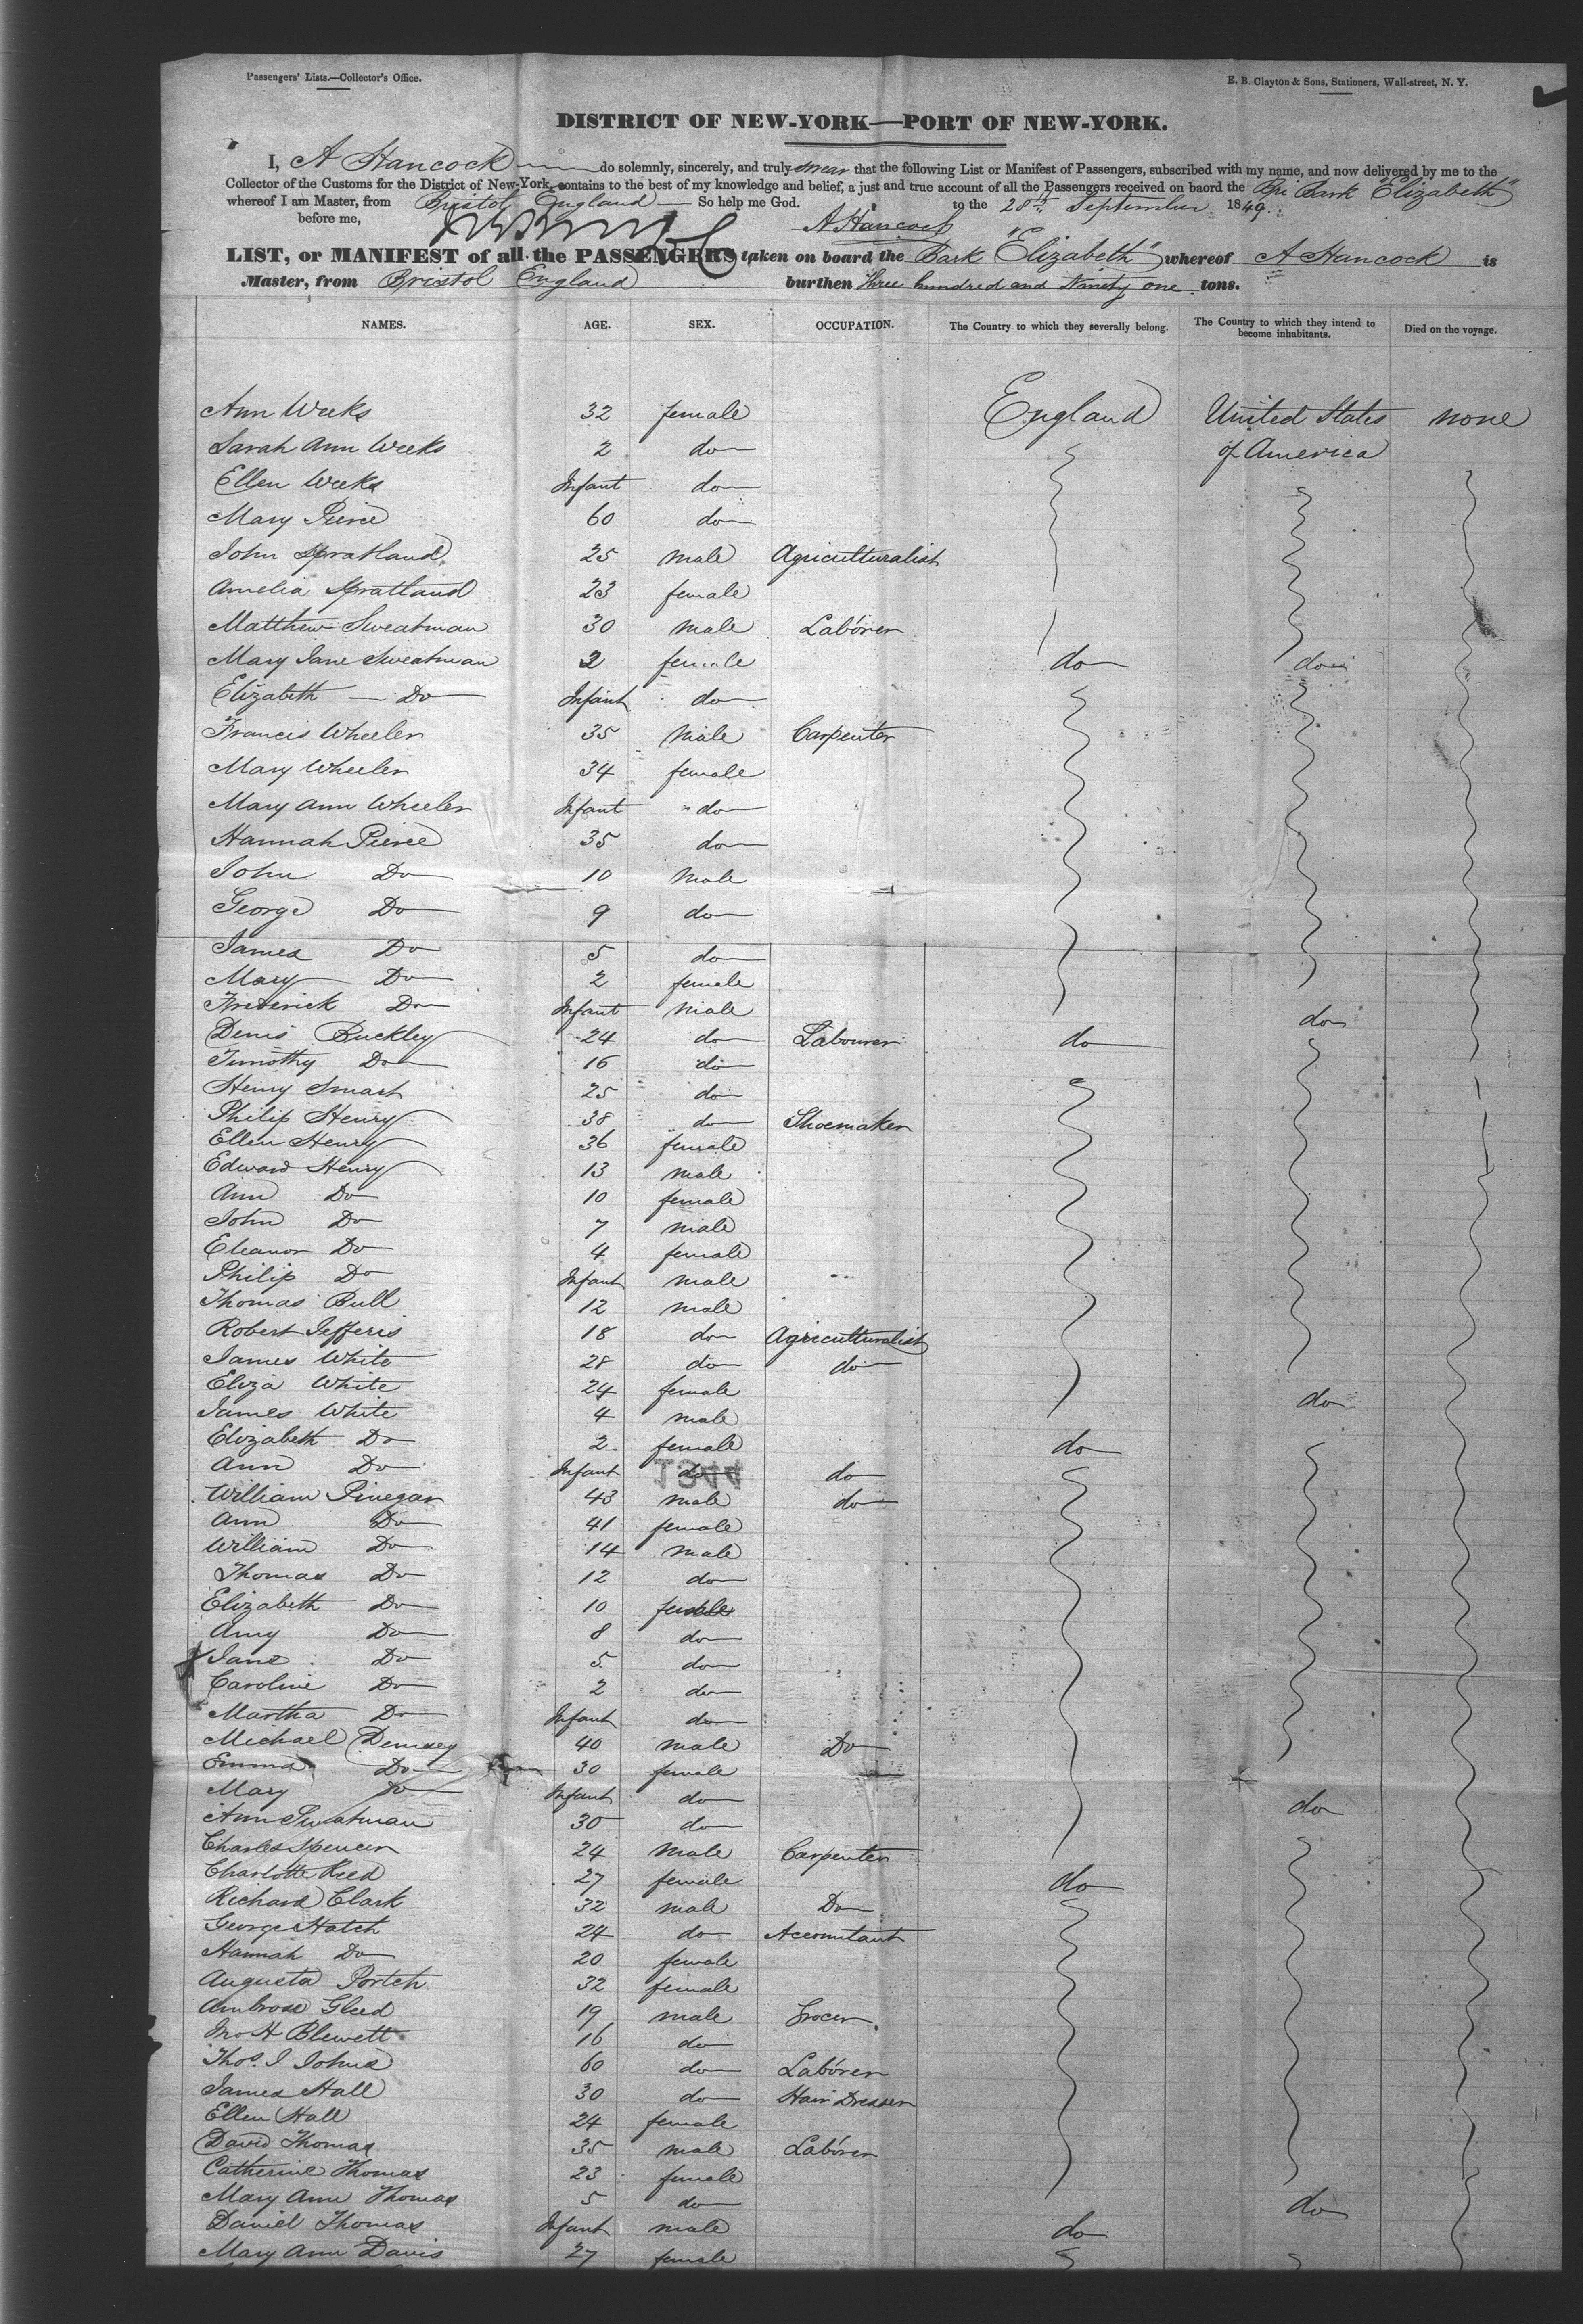 Passengers' Lists.—Collector's Office. E. B. Clayton & Sons, Stationers, Wall-street, N. Y.
DISTRICT OF NEW-YORK—PORT OF NEW-YORK.
I, A Hancock do solemnly, sincerely, and truly swear that the following List or Manifest of Passengers, subscribed with my name, and now delivered by me to the
Collector of the Customs for the District of New-York, contains to the best of my knowledge and belief, a just and true account of all the Passengers received on baord the Bri Bark "Elizabeth"
whereof I am Master, from Bristol England So help me God. to the 28th September 1849.
before me, A Hancock
LIST, or MANIFEST of all the PASSENGERS taken on board the Bark "Elizabeth" whereof A Hancock is
Master, from Bristol England burthen Three hundred and Ninety one tons.
NAMES. AGE. SEX. OCCUPATION. The Country to which they severally belong. The Country to which they intend to become inhabitants. Died on the voyage.
Ann Weeks 32 female England United States none
Sarah Ann Weeks 2 do of America
Ellen Weeks Infant do
Mary Pierce 60 do
John Spratland 25 male Agriculturalist
Amelia Spratland 23 female
Matthew Sweatman 30 male Laborer
Mary Jane Sweatman 2 female do do
Elizabeth Do Infant do
Francis Wheeler 35 male Carpenter
Mary Wheeler 34 female
Mary Ann Wheeler Infant do
Hannah Pierce 35 do
John Do 10 Male
George Do 9 do
James Do 5 do
Mary Do 2 female
Frederick Do Infant male do
Denis Buckley 24 do Labourer do
Timothy Do 16 do
Henry Smart 25 do
Philip Henry 38 do Shoemaker
Ellen Henry 36 female
Edward Henry 13 male
Ann Do 10 female
John Do 7 male
Eleanor Do 4 female
Philip Do Infant male
Thomas Bull 12 male
Robert Jefferis 18 do Agriculturalist
James White 28 do do
Eliza White 24 female
James White 4 male do
Elizabeth Do 2 female do
Ann Do Infant do do
William Pinegar 43 male do
Ann Do 41 female
William Do 14 male
Thomas Do 12 do
Elizabeth Do 10 female
Amy Do 8 do
Jane Do 5 do
Caroline Do 2 do
Martha Do Infant do
Michael Demsey 40 male Do
Emma Do 30 female
Mary Do Infant do do
Ann Sweatman 30 do
Charles Spencer 24 Male Carpenter
Charlotte Reed 27 female do
Richard Clark 32 male Do
George Hatch 24 do Accountant
Hannah Do 20 female
Augusta Portch 32 female
Ambrose Gleed 19 male Grocer
Jno H Blewett 16 do
Thos. J Johns 60 do Laborer
James Hall 30 do Hair Dresser
Ellen Hall 24 female
David Thomas 35 male Laborer
Catherine Thomas 23 female
Mary Ann Thomas 5 do do
Daniel Thomas Infant male do
Mary Ann Davis 27 female